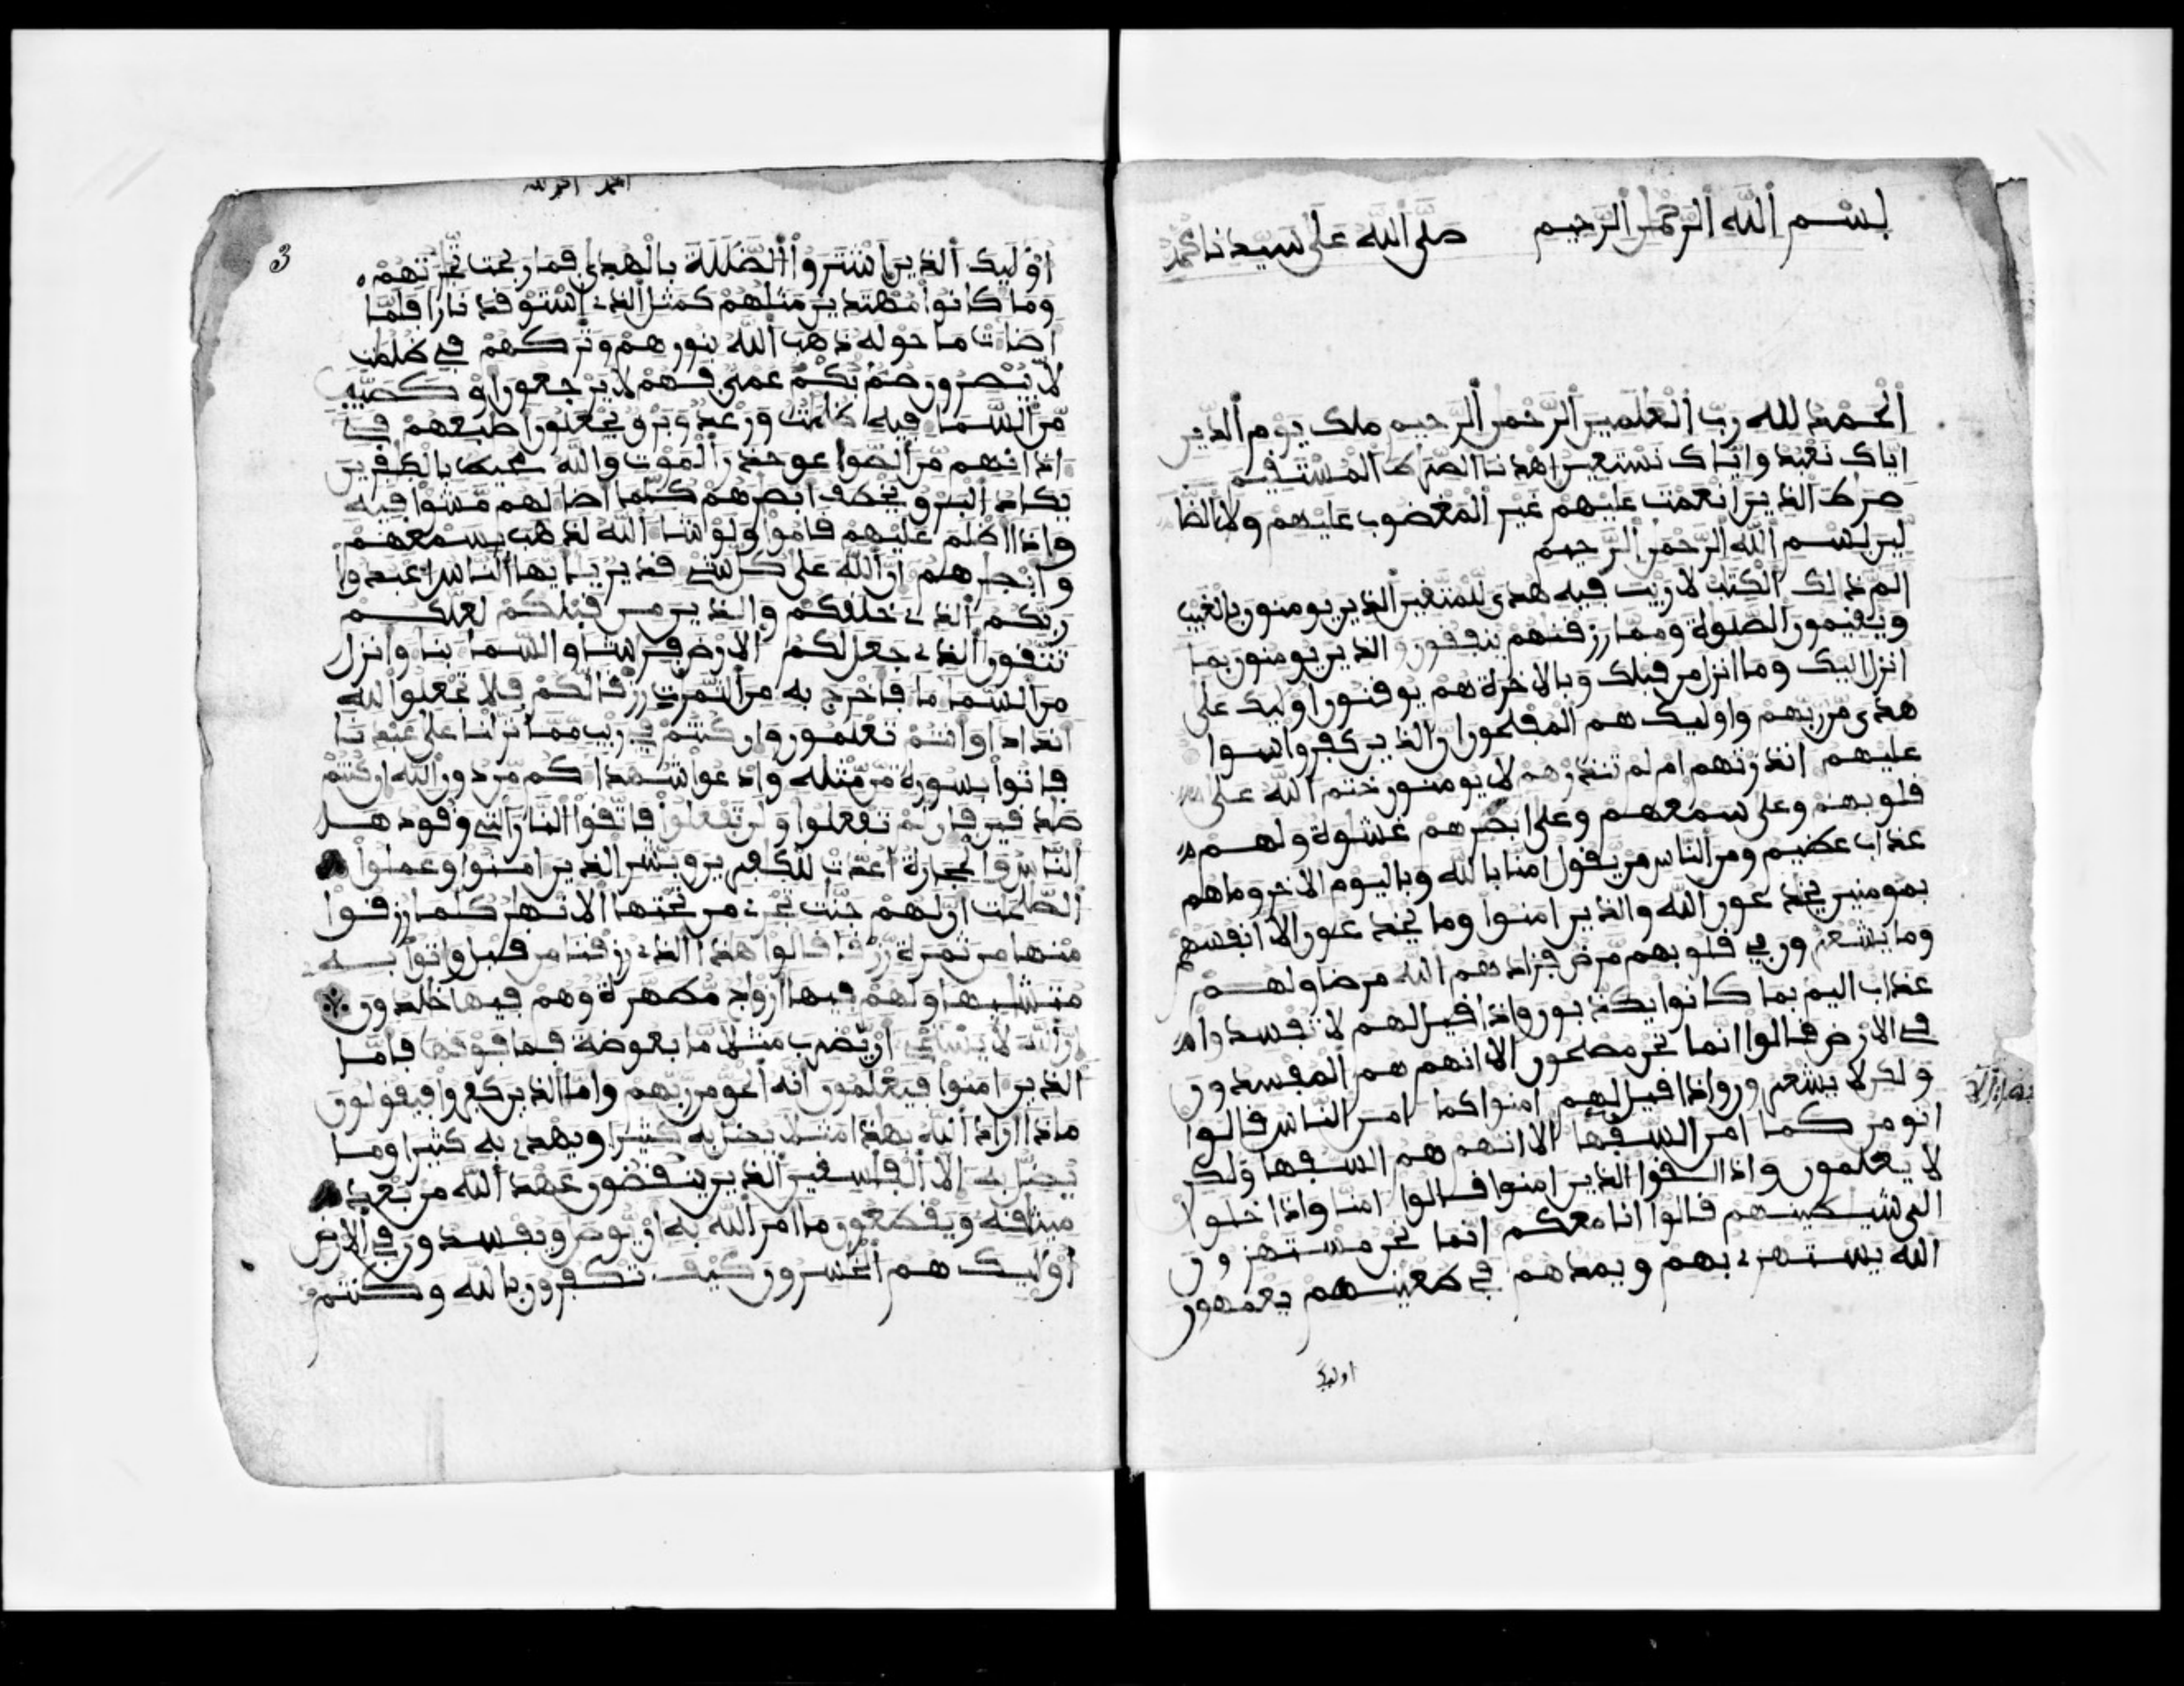 بسم الله الرحمن الرحيم صلى الله على سيدنا محمد
الحمد لله رب العلمين الرحمن الرحيم ملك يوم الدين
اياك نعبد واياك نستعين اهدنا الصراط المستقيم
صراط الذين انعمت عليهم غير المغضوب عليهم ولا الضا
لين بسم الله الرحمن الرحيم
الم ذلك الكتب لا ريب فيه هدى للمتقين الذين يومنون بالغيب
ويقيمون الصلوة ومما رزقنهم ينفقون والذين يومنون بما
انزل اليك وما انزل من قبلك وبالاخرة هم يوقنون اوليك على
هدى من ربهم واوليك هم المفلحون ان الذين كفروا سوا
عليهم انذرتهم ام لم تنذرهم لا يومنون ختم الله على
قلوبهم وعلى سمعهم وعلى ابصرهم غشوة ولهم
عذاب عظيم ومن الناس من يقول امنا بالله وباليوم الاخر وما هم
بمومنين يخدعون الله والذين امنوا وما يخدعون الا انفسهم
وما يشعرون في قلوبهم مرض فزادهم الله مرضا ولهم
عذاب اليم بما كانوا يكذبون واذا قيل لهم لا تفسدوا
في الارض قالوا انما نحن مصلحون الا انهم هم المفسدون
ولكن لا يشعرون واذا قيل لهم امنوا كما امن الناس قالوا
انومن كما امن السفها الا انهم هم السفها ولكن
لا يعلمون واذا لقوا الذين امنوا قالوا امنا واذا خلوا
الى شيطينهم قالوا انا معكم انما نحن مستهزون
الله يستهزي بهم ويمدهم في طغينهم يعمهون
اوليك
3
اوليك الذين اشتروا الضللة بالهدى فما ربحت تجرتهم
وما كانوا مهتدين مثلهم كمثل الذي استوقد نارا فلما
اضات ما حوله ذهب الله بنورهم وتركهم في ظلمت
لا يبصرون صم بكم عمي فهم لا يرجعون او كصيب
من السما فيه ظلمت ورعد وبرق يجعلون اصبعهم في
اذانهم من الصوعق حذر الموت والله محيط بالكفرين
يكاد البرق يخطف ابصرهم كلما اضا لهم مشوا فيه
واذا اظلم عليهم قاموا ولو شا الله لذهب بسمعهم
وابصرهم ان الله على كل شي قدير يايها الناس اعبدوا
ربكم الذي خلقكم والذين من قبلكم لعلكم
تتقون الذي جعل لكم الارض فرشا والسما بنا وانزل
من السما ما فاخرج به من الثمرت رزقا لكم فلا تجعلوا لله
اندادا وانتم تعلمون وان كنتم في ريب مما نزلنا على عبدنا
فاتوا بسورة من مثله وادعوا شهداكم من دون الله ان كنتم
صدقين فان لم تفعلوا ولن تفعلوا فاتقوا النار التي وقودها
الناس والحجارة اعدت للكفرين وبشر الذين امنوا وعملوا
الصلحت ان لهم جنت تجري من تحتها الانهر كلما رزقوا
منها من ثمرة رزقا قالوا هذا الذي رزقنا من قبل واتوا به
متشبها ولهم فيها ازواج مطهرة وهم فيها خلدون
ان الله لا يستحي ان يضرب مثلا ما بعوضة فما فوقها فاما
الذين امنوا فيعلمون انه الحق من ربهم واما الذين كفروا فيقولون
ماذا اراد الله بهذا مثلا يضل به كثيرا ويهدي به كثيرا وما
يضل به الا الفسقين الذين ينقضون عهد الله من بعد
ميثقه ويقطعون ما امر الله به ان يوصل ويفسدون في الارض
اوليك هم الخسرون كيف تكفرون بالله وكنتم